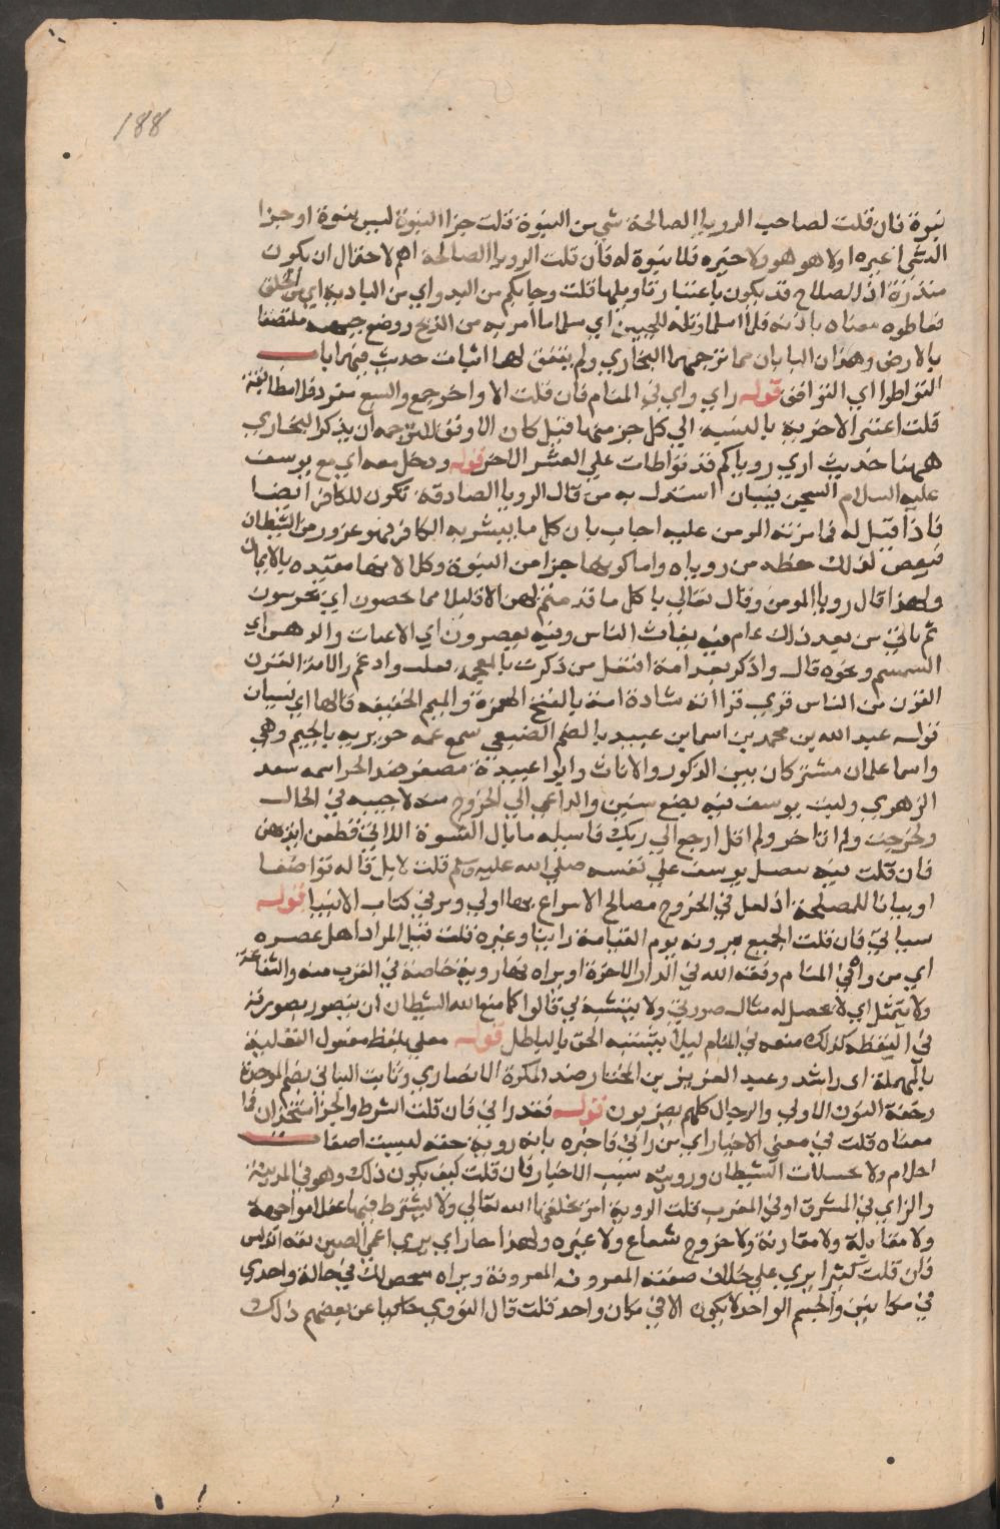 188
نبوة فان قلت لصاحب الرويا الصالحة شي من النبوة قلت جزا النبوة ليس بنبوة او جزا
الشي غيره او لا هو هو ولا غيره فلا نبوة له فان قلت الرويا الصالحة اعم لاحتمال ان يكون
منذرة اذ الصلاح قد يكون باعتبار تاويلها قلت وجابكم من البدو اي من البادية اي من الخلق
فعاطوه معناه باذنه فلما اسلما وتله للجبين اي سلما ما امر به من الذبح ووضع جبهه ملتصقا
بالارض وهذان البابان مما ترجمهما البخاري ولم يتفق لها اثبات حديث فيهما باب
التواطوا اي التوافق قوله راي واي في المنام فان قلت الاواخر جمع والسبع مفرد فلا مطابقة
قلت اعتبر الاخرية بالنسبة الي كل جز منها قيل كان الاوفق للترجمه ان يذكر البخاري
ههنا حديث اري روياكم قد تواطات علي العشر الاخر قوله ودخل معه اي مع يوسف
عليه السلام السجن فتيان استدل به من قال الرويا الصادقة تكون للكافر ايضا
فاذا قيل له فما مزية المومن عليه اجاب بان كل ما يبشر به الكافر فهو غرور من الشيطان
فينقص لذلك حظه من روياه واما كونها جزا من النبوة وكلا لانها مقيده بالايمان
ولهذا قال رويا المومن وقال تعالي يا كل ما قدمتم لهن الا قليلا مما تحصنون اي تحرسون
ثم ياتي من بعد ذلك عام فيه يغاث الناس وفيه يعصرون اي الاعناب والدهن اي
السمسم ونحوه قال وادكر بعد امة افتعل من ذكرت بالمعجمه وادغم والامة القرن
القرن من الناس قوله قرا انه شاذة امة بالفتح الهمزة والميم الخفيفه قالها اي نسيان
قوله عبد الله بن محمد بن اسما بن عبيد بالضم الضبعي سمع عمه جويريه بالجيم وهي
واسما علمان مشتركان بين الذكور والاناث وابو عبيدة مصغر ضد الحر اسمه سعد
الزهري ولبث يوسف فيه بضع سنين والداعي الي الخروج منه لاجيبه في الحال
ولخرجت ولم اتاخر ولم اقل ارجع الي ربك فاسيله ما بال النسوة اللاتي قطعن ايديهن
فان قلت فيه يوسف علي نفسه صلي الله عليه وسلم قلت لا بل قاله تواضعا
او بيانا للمصلحة اذ لعل في الخروج مصالح الاسراع بها اولي ومر في كتاب الانبيا قوله
سيراني فان قلت الجميع يرونه يوم القيامة رايناه وغيره قلت قيل المراد اهل عصره
اي من راي في المنام وفقه الله في الدار الاخرة او يراه فيها روية خاصة في القرب منه والشفاعة
ولا يتمثل اي لا يحصل له مثال صورتي ولا يتشبه بي قالوا كما منع الله الشيطان ان يتصور بصورته
في اليقظه كذلك منعه في المنام ليلا يشتبه الحق بالباطل قوله معلي بلفظ مفعول التعلية
بالمهملة ابن راشد وعبد العزيز بن المختار ضد المكره الانصاري وثابت البناني بضم الموحدة
وخفة النون الاولي والرجال كلهم بصريون قوله فقد راني فان قلت الشرط والجزا متحدان فما
معناه قلت في معني الاخبار اي من راني فاخبره بانه روية حقه ليست اضغاث
احلام ولا تخيلات الشيطان ورويته سبب الاخبار فان قلت كيف يكون ذلك وهو في المدينة
والراي في المشرق او في المغرب قلت الروية امر يخلقها الله تعالي ولا يشترط فيها عقلا مواجهة
ولا مقابلة ولا مقارنة ولا خروج شعاع ولا غيره ولهذا جاز اي يري اعمي الصين بقة اندلس
فان قلت كثيرا يري علي خلاف صفته المعروفه ويراه شخصان في حالة واحدة
في مكانين والجسم الواحد لا يكون الا في مكان واحد قلت قال النووي حاكيا عن بعضهم ذلك